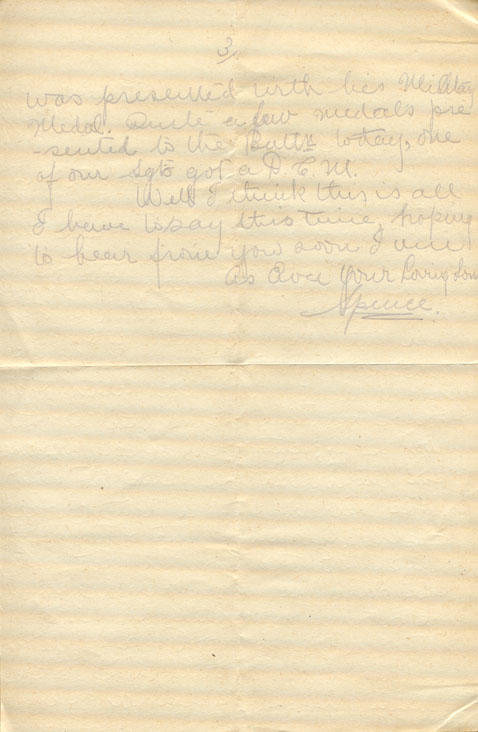 3/.
was presented with his Military
Medal. Quite a few medals pre
-sented to the Battn today, one
of our Sgts got a D.C.M.
Well I think this is all
I have to say this time, hoping
to hear from you soon I am
as Ever your Loving Son
Spence.